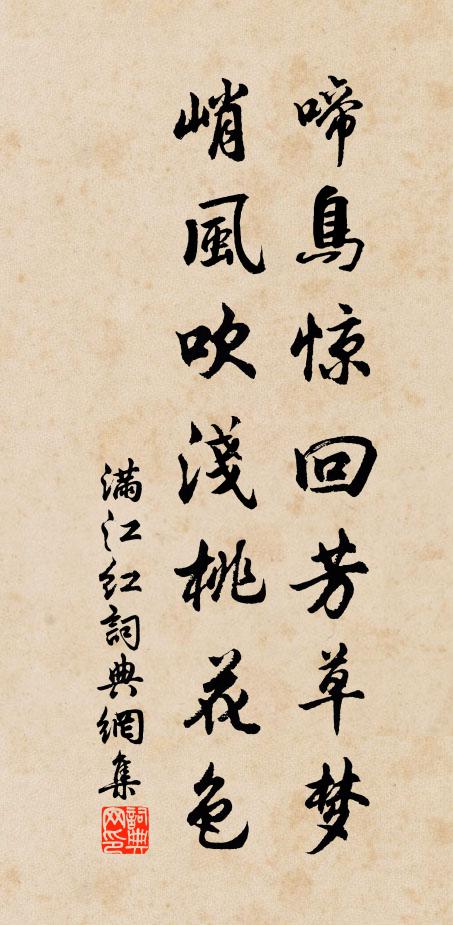 啼鳥惊回芳草梦
峭風吹淺桃花色
满江红詞典網集
詞典网印